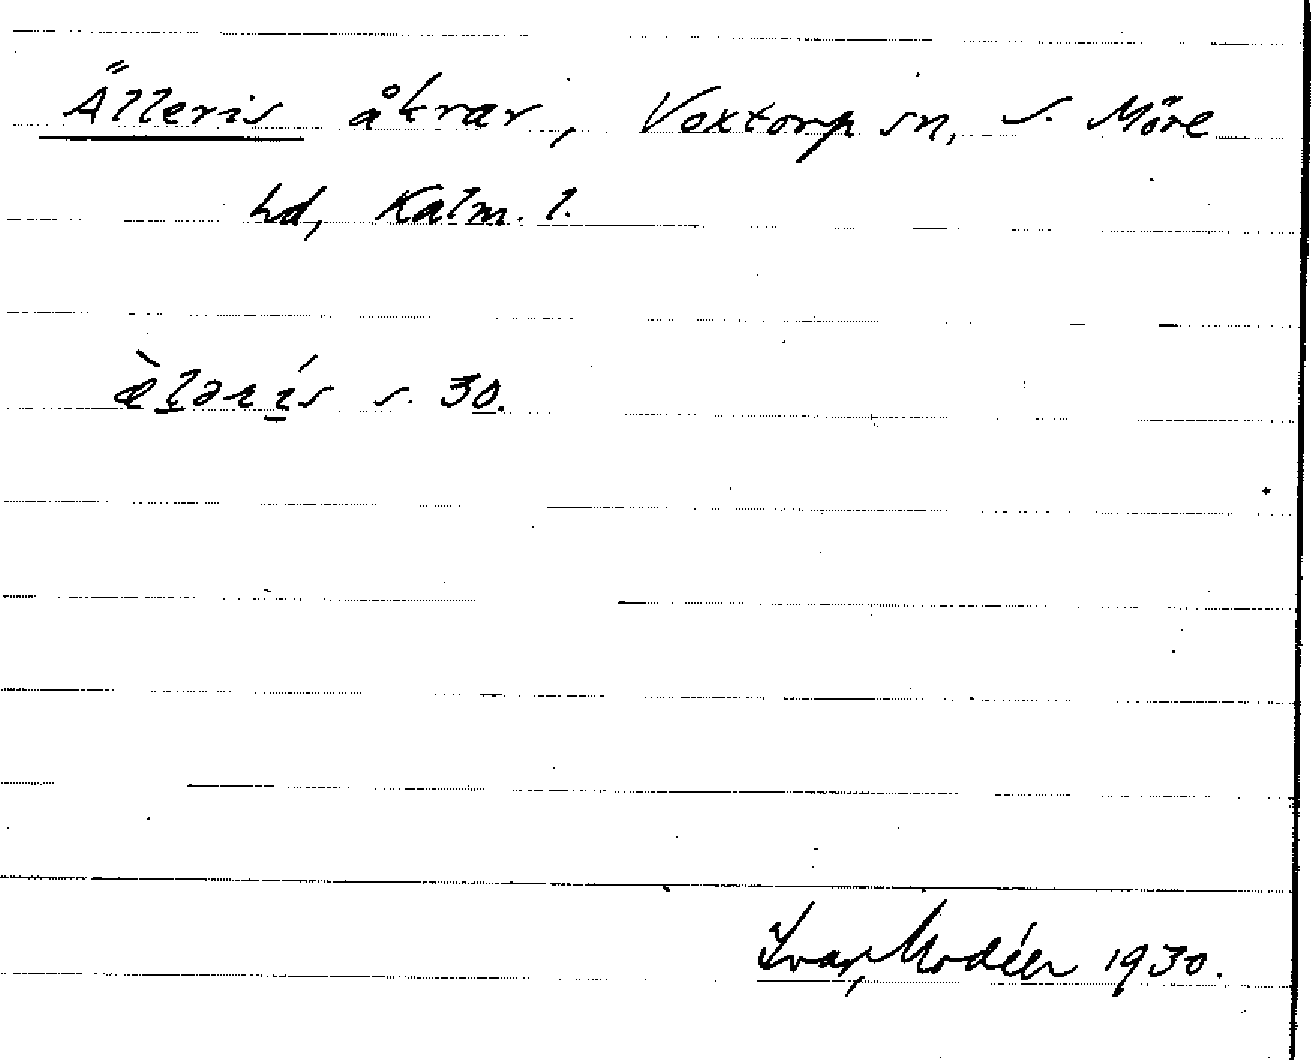 Älleris åkrar, Voxtorp sn, S. Möre
hd, Kalm. l.
æ̀lərís s. 30.
Ivar Modéer 1930.